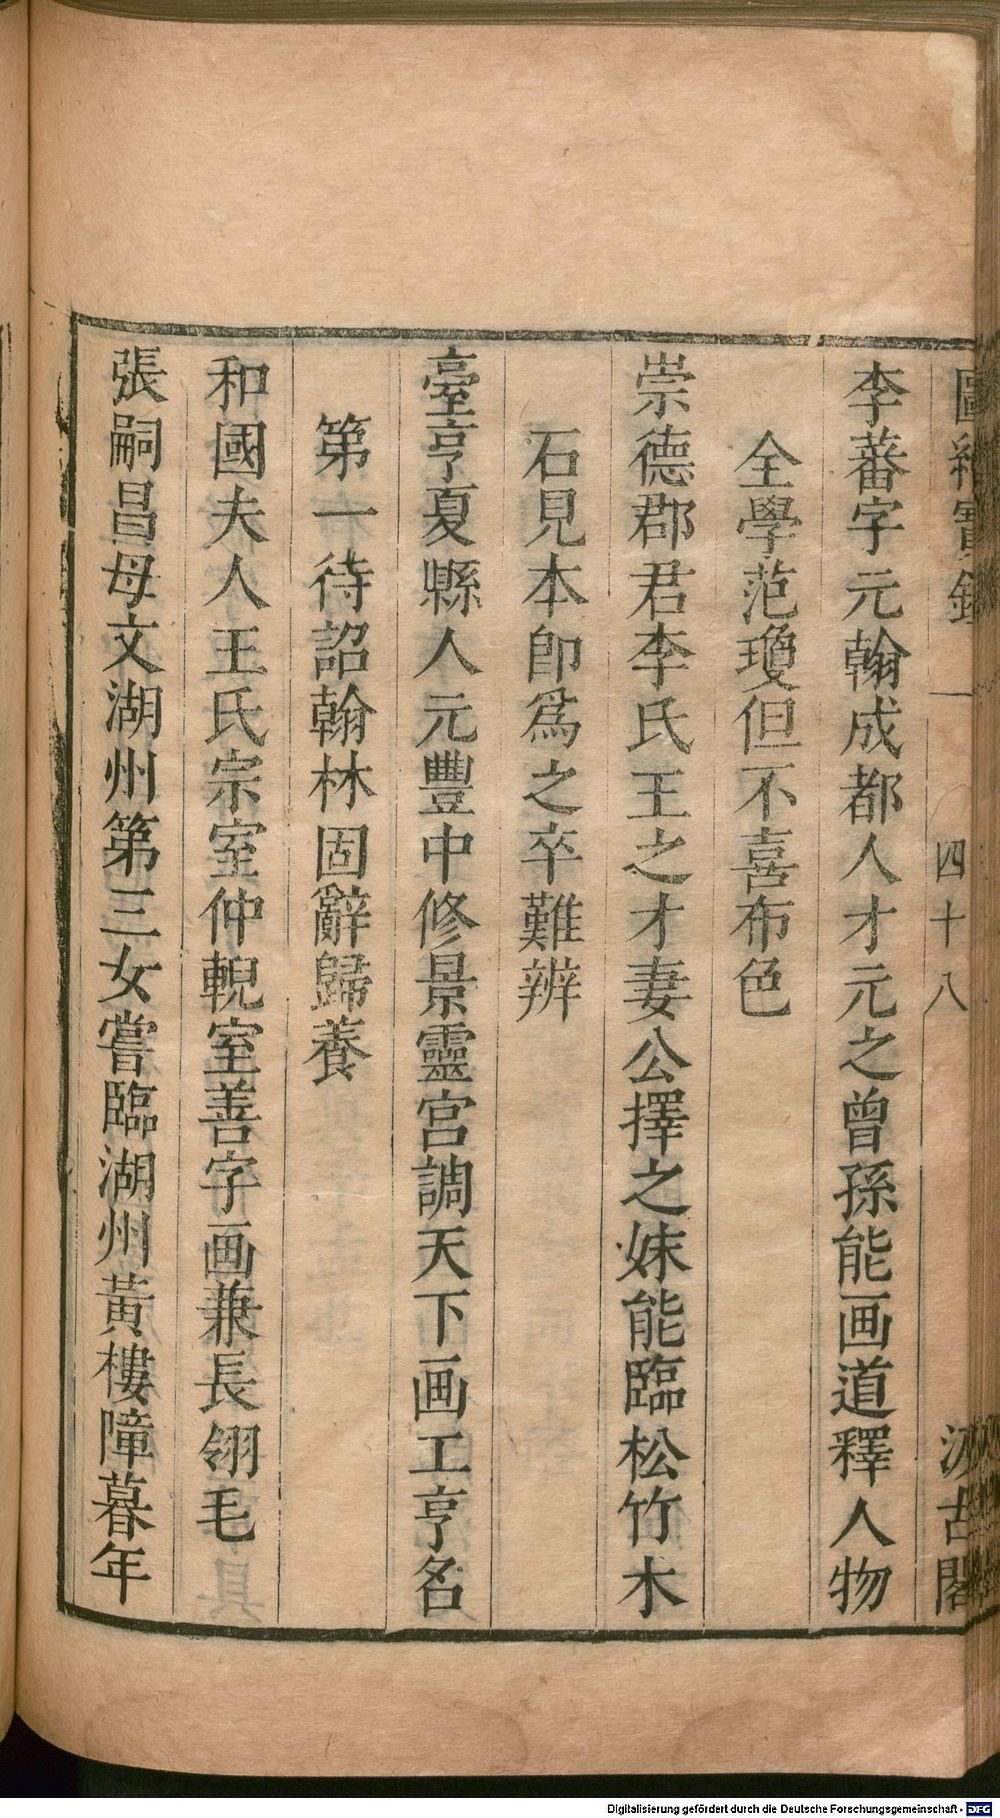 圖繪寶鑑 一 四十八 汲古閣
李蕃字元翰成都人才元之曾孫能画道釋人物
全學范瓊但不喜布色
崇德郡君李氏王之才妻公擇之妹能臨松竹木
石見本即爲之卒難辨
臺亨夏縣人元豐中修景靈宮調天下画工亨名
第一待詔翰林固辭歸養
和國夫人王氏宗室仲輗室善字画兼長翎毛
張嗣昌母文湖州第三女嘗臨湖州黃樓障暮年
Digitalisierung gefördert durch die Deutsche Forschungsgemeinschaft - DFG